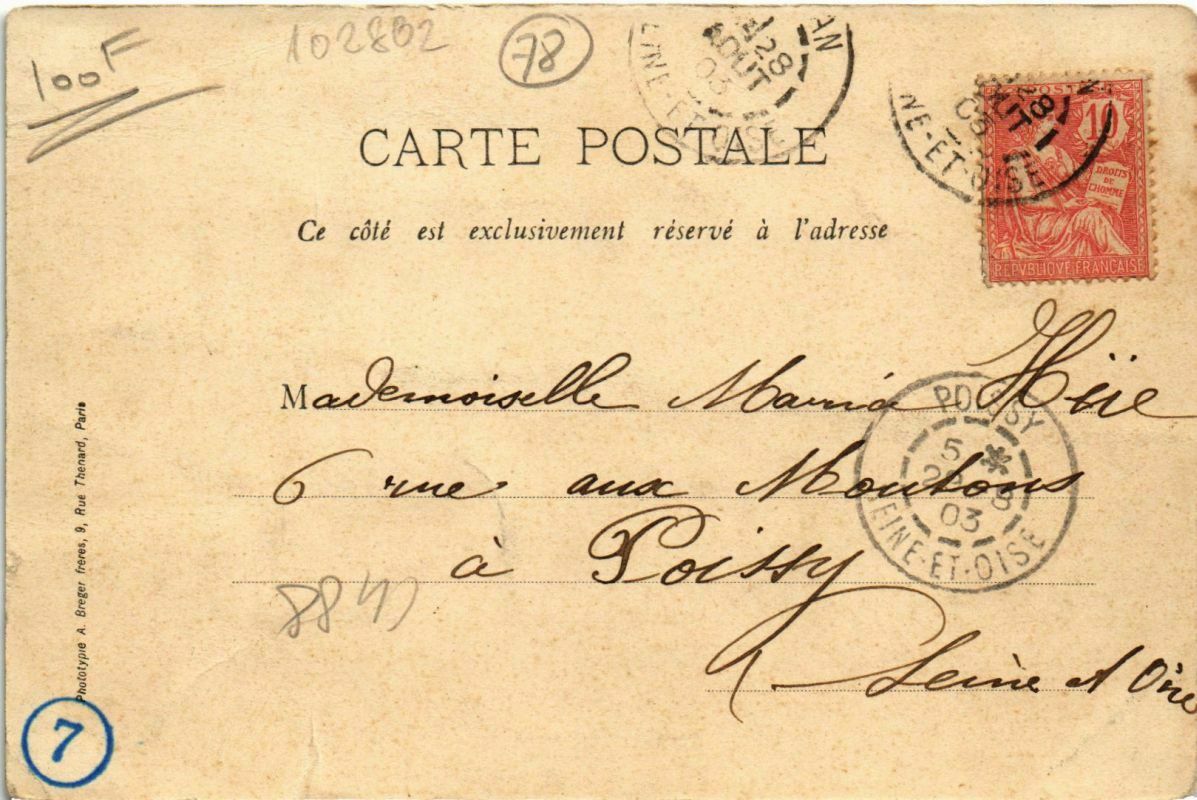 100F
102802
78
28
AOUT
03
EINE-ET-OISE
POSTES
10
DROITS
DE
L'HOMME
REPVBLIQVE FRANÇAISE
28
AOUT
NE-ET-OISE
CARTE POSTALE
Ce côté est exclusivement réservé à l'adresse
Mademoiselle Maria
6 rue aux Moutons
à Poissy
Seine et Oise
POISSY
5 *
28-8
03
SEINE-ET-OISE
Phototypie A. Breger frères, 9, Rue Thenard, Paris
7